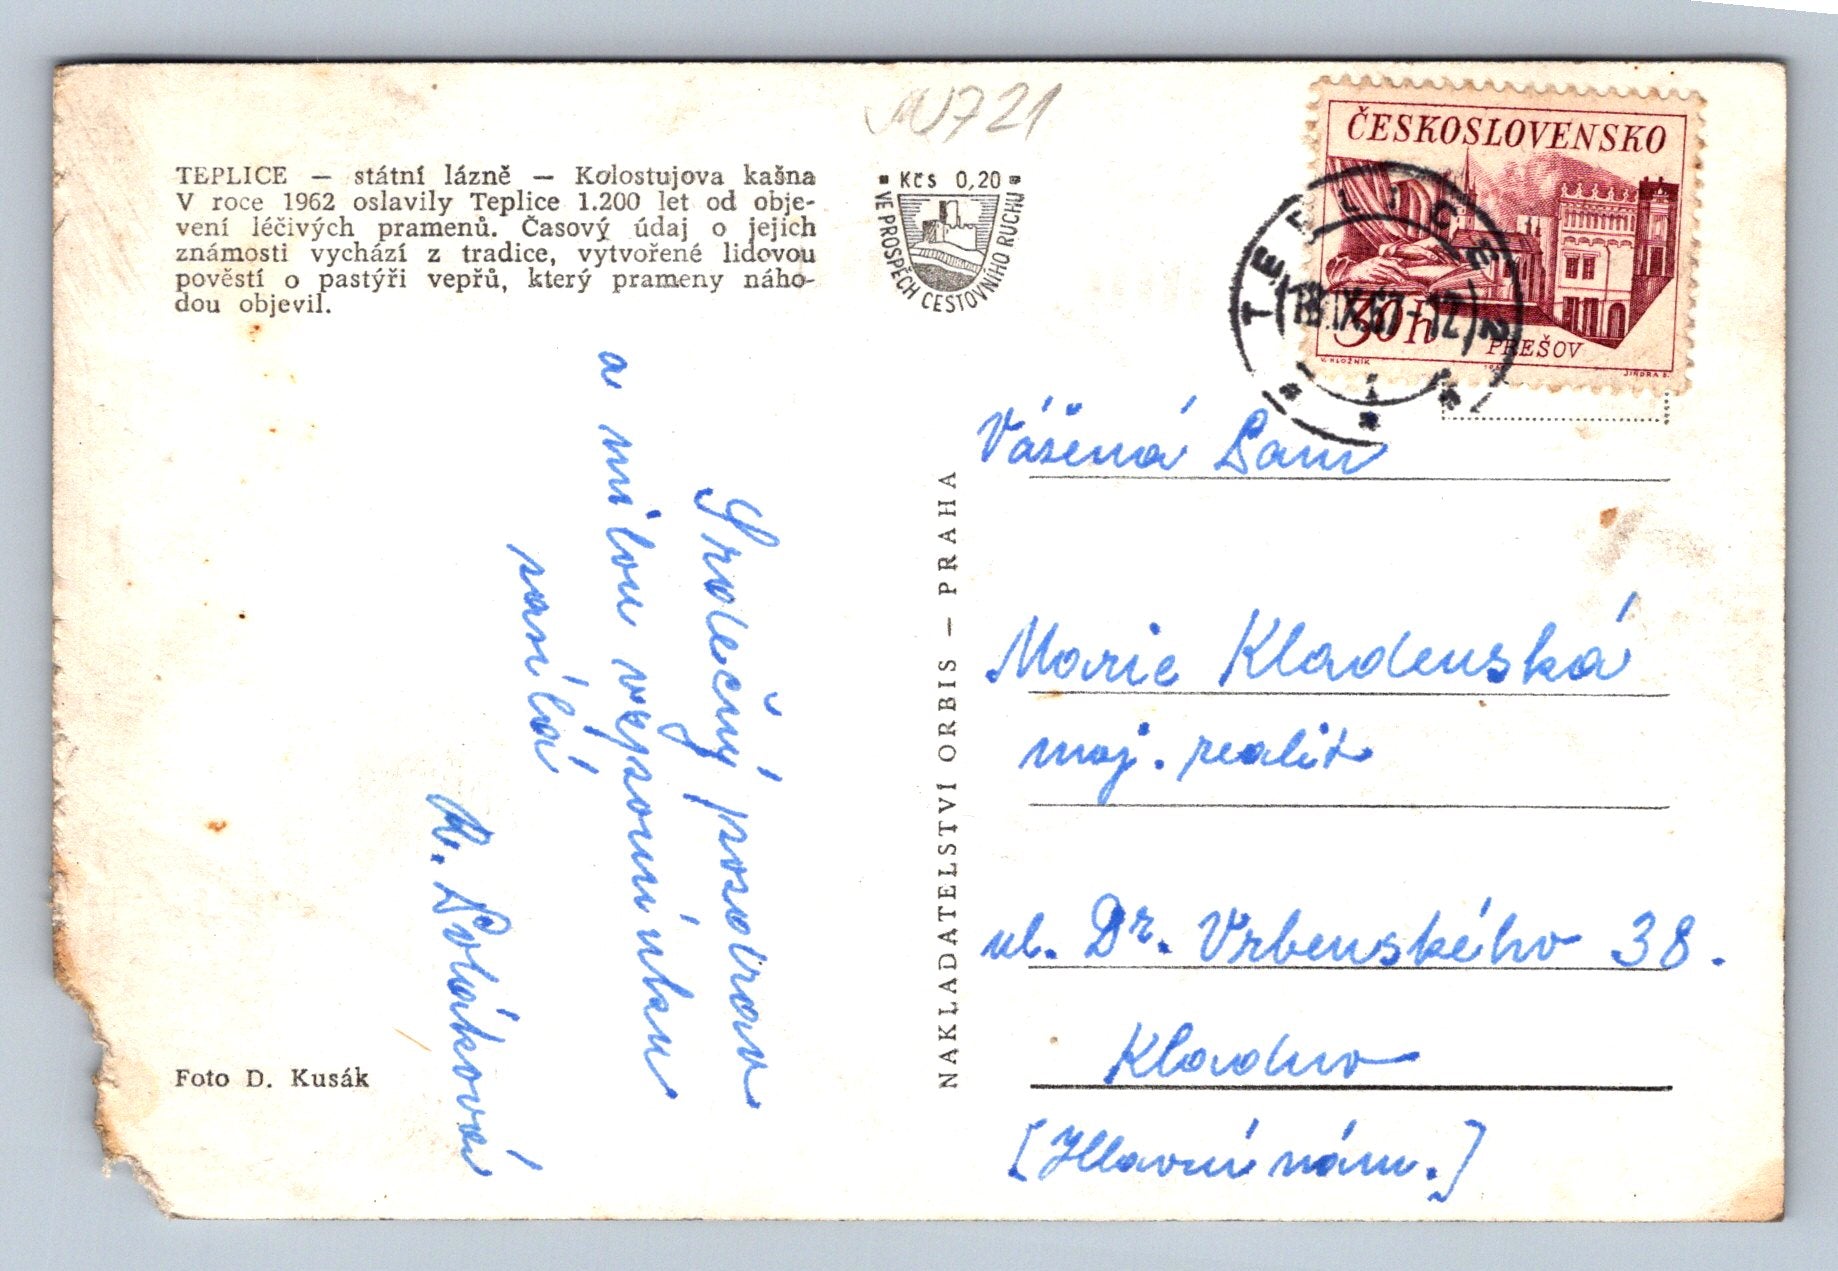 NU721
TEPLICE — státní lázně — Kolostujova kašna
V roce 1962 oslavily Teplice 1.200 let od obje-
vení léčivých pramenů. Časový údaj o jejich
známosti vychází z tradice, vytvořené lidovou
pověstí o pastýři vepřů, který prameny náho-
dou objevil.
Kčs 0,20
VE PROSPĚCH CESTOVNÍHO RUCHU
ČESKOSLOVENSKO
30h
PREŠOV
V. HLOŽNÍK
JINDRA S.
TEPLICE 2
18.IX.67-12
1
Srdečný pozdrav
a milou vzpomínku
zasílá
M. Poláková
NAKLADATELSTVÍ ORBIS — PRAHA
Vážená Paní
Marie Kladenská
maj. realit
ul. Dr. Vrbenského 38.
Kladno
[Hlavní nám.]
Foto D. Kusák